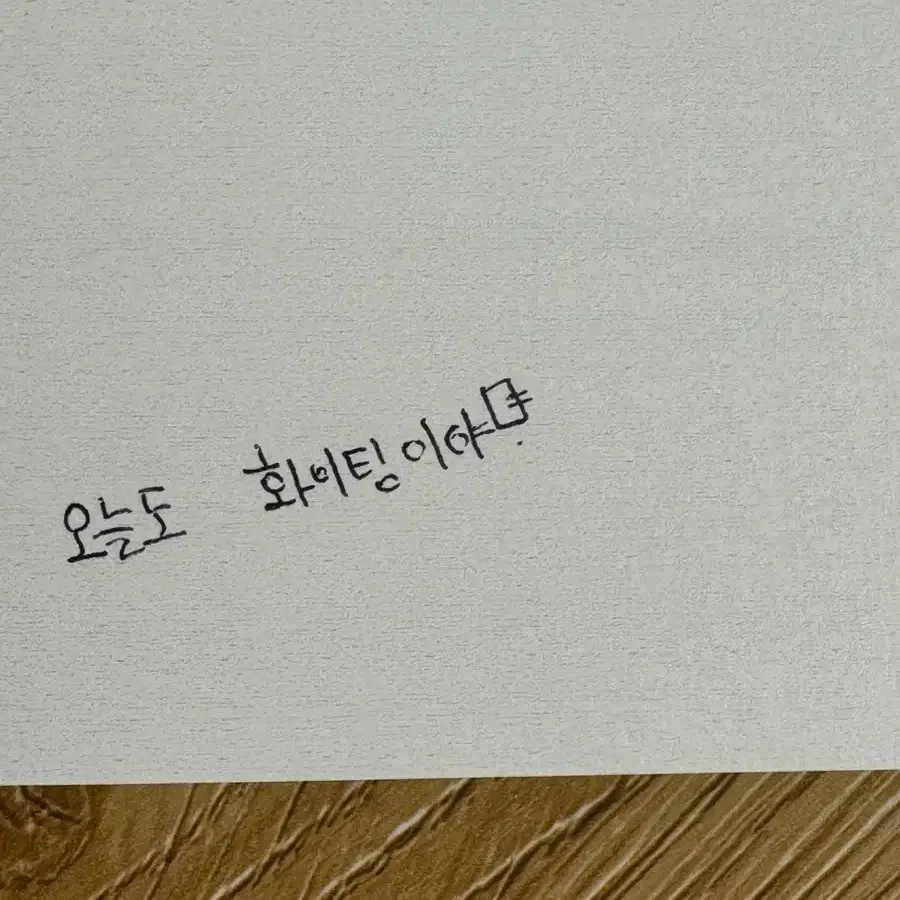 오늘도 화이팅이야